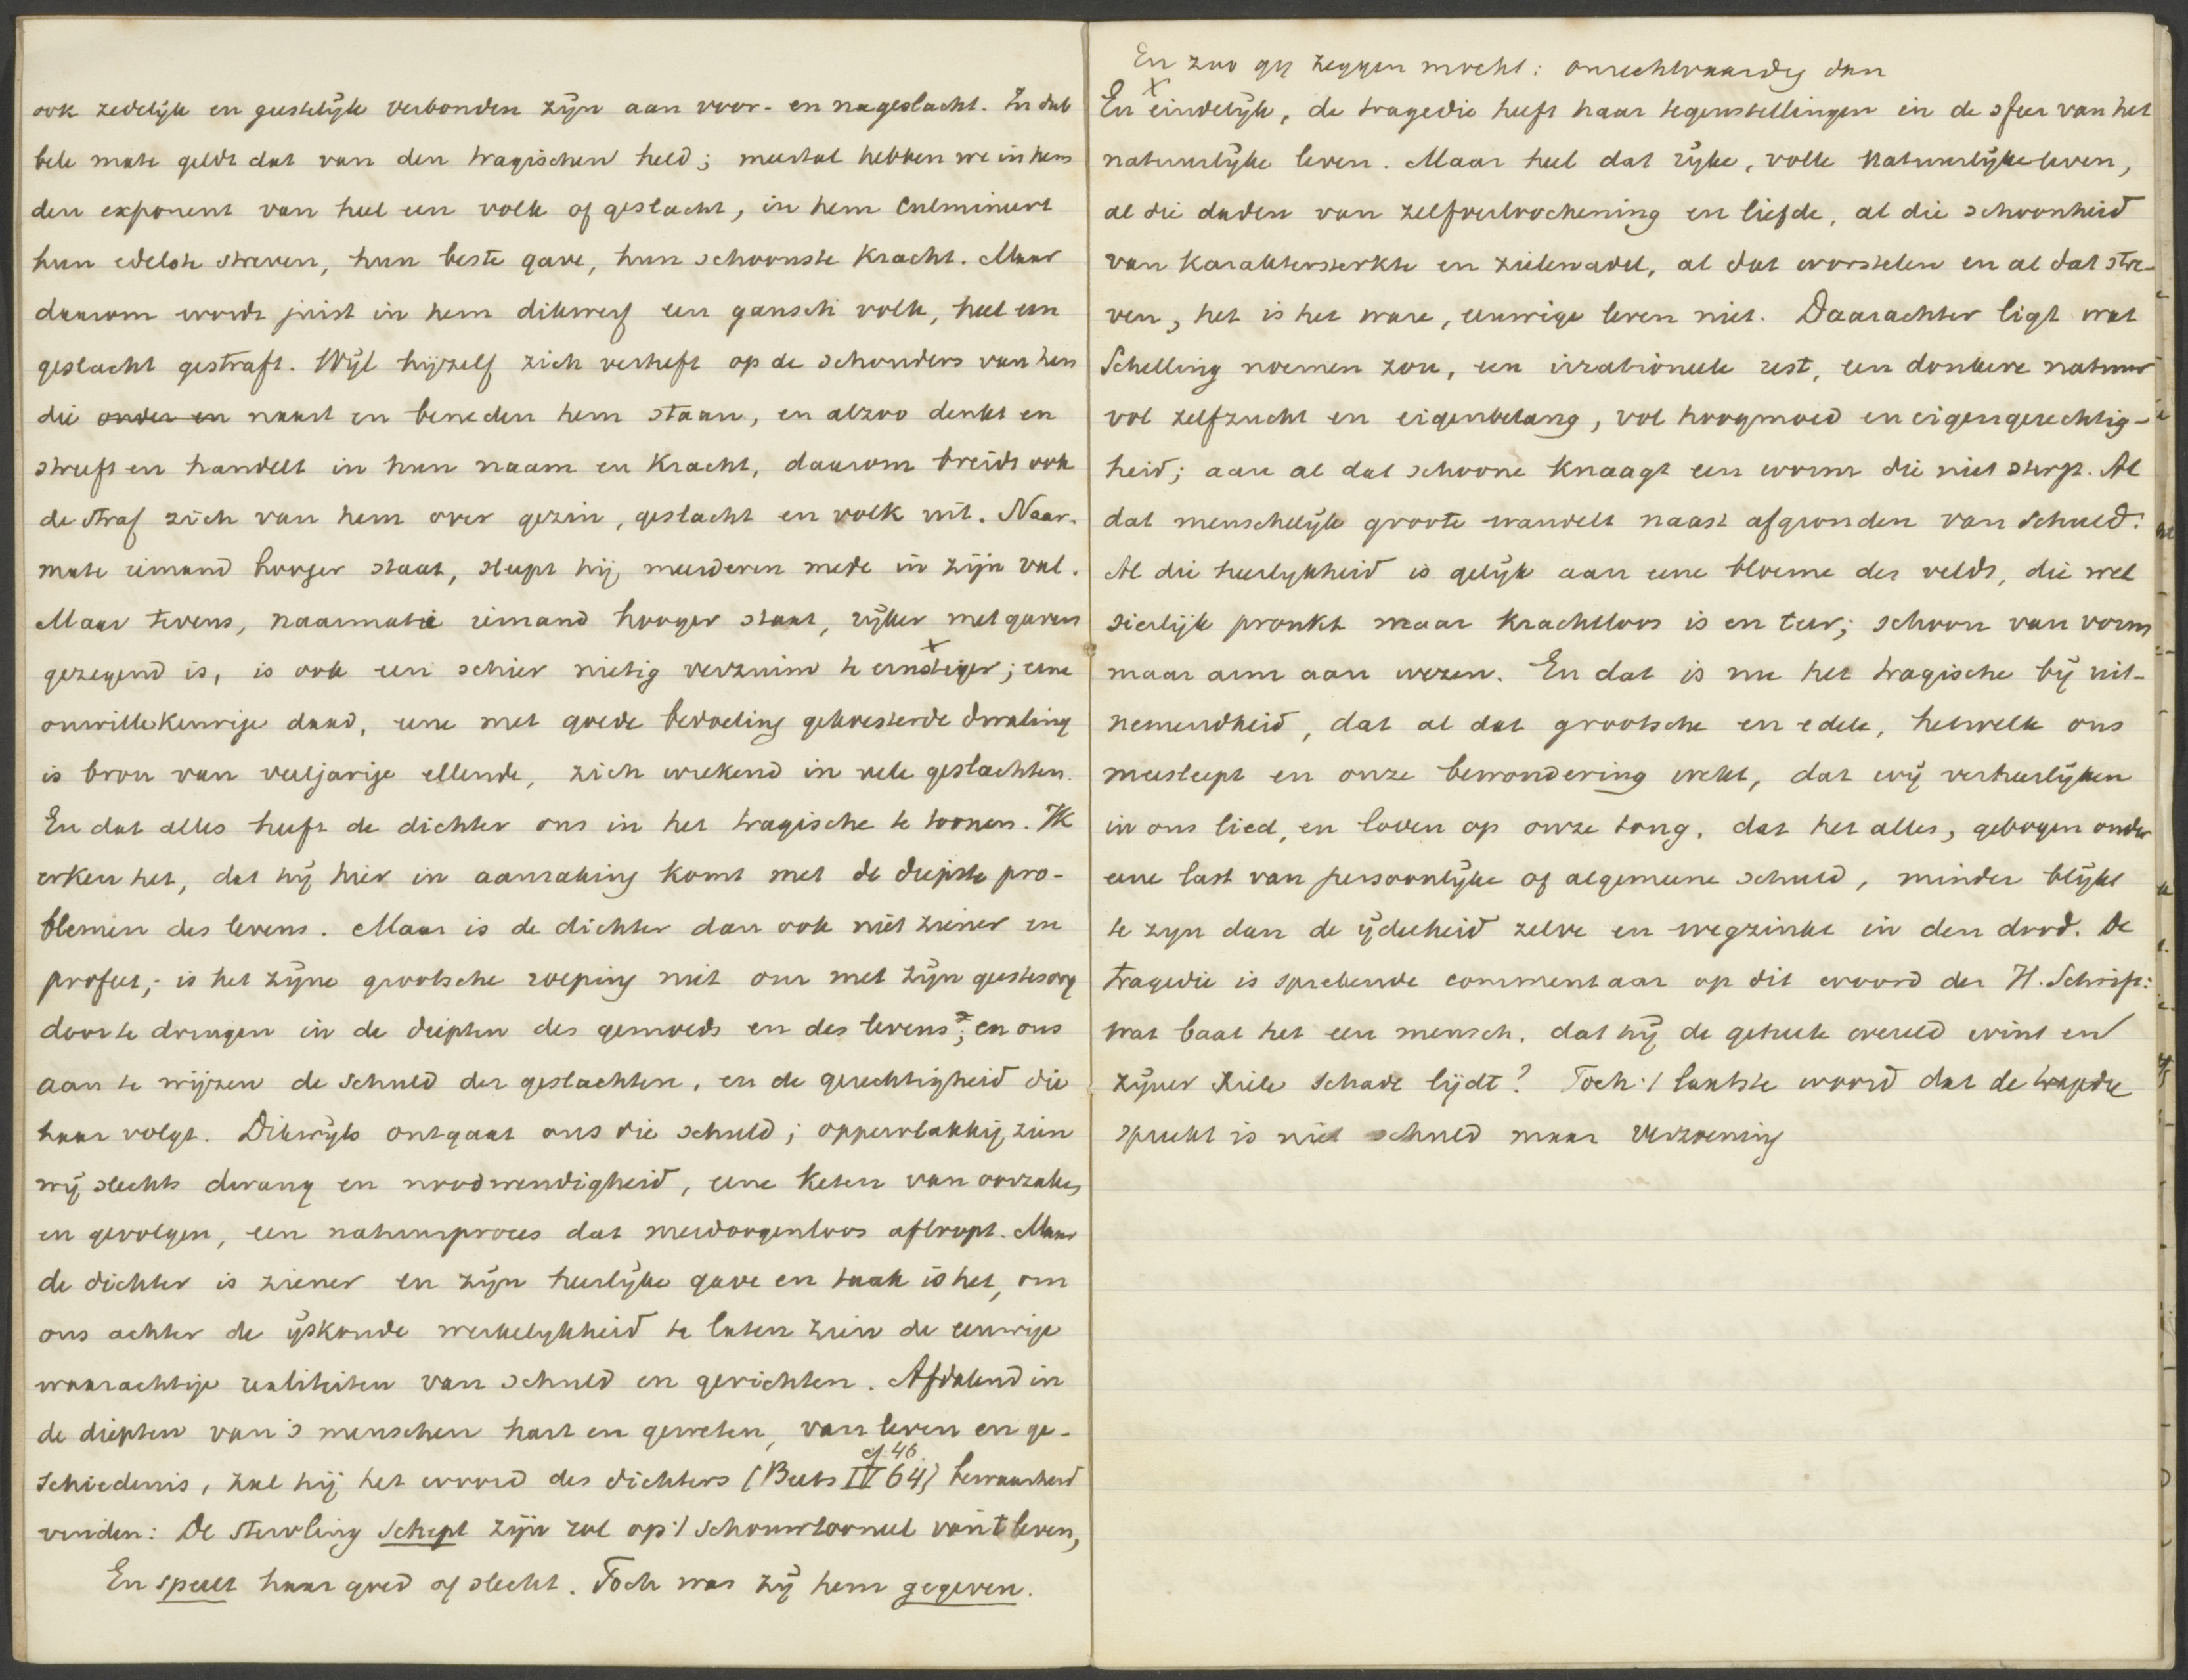 ook zedelijk en geestelijk verbonden zijn aan voor- en nageslacht. In dub
bele mate geldt dat van den tragischen held; meestal hebben we in hem
den exponent van heel een volk of geslacht, in hem culmineert
hun edelste streven, hun beste gave, hun schoonste kracht. Maar
daarom wordt juist in hem dikwerf een gansch volk, heel een
geslacht gestraft. Wijl hijzelf zich verheft op de schouders van hen
die onder en naast en beneden hem staan, en alzoo denkt en
streeft en handelt in hun naam en kracht, daarom breidt ook
de straf zich van hem over gezin, geslacht en volk uit. Naar-
mate iemand hooger staat, sleept hij meerderen mede in zijn val.
Maar tevens, naarmate iemand hooger staat, rijker met gaven
gezegend is, is ook een schier nietig verzuim te ernstiger; eene
onwillekeurige daad, eene met goede bedoeling gekoesterde dwaling
is bron van veeljarige ellende, zich wrekend in vele geslachten.
En dat alles heeft de dichter ons in het tragische te toonen. Ik
erken het, dat hij hier in aanraking komt met de diepste pro-
blemen des levens. Maar is de dichter dan ook niet ziener en
profeet; is het zijne grootsche roeping niet om met zijn geestesoog
door te dringen in de diepten des gemoeds en des levens?; en ons
aan te wijzen de schuld der geslachten, en de gerechtigheid die
haar volgt. Dikwijls ontgaat ons die schuld; oppervlakkig zien
wij slechts dwang en noodwendigheid, eene keten van oorzaken
en gevolgen, een natuurproces dat meedoogenloos afloopt. Maar
de dichter is ziener en zijn heerlijke gave en taak is het, om
ons achter de ijskoude werkelijkheid te laten zien de eeuwige
waarachtige realiteiten van schuld en gerichten. Afdalend in
de diepten van 's menschen hart en geweten, van leven en ge-
cf 46.
schiedenis, zal hij het woord des dichters (Beets IV 64) bewaarheid
vinden: De sterveling schept zijn rol op 't schouwtooneel van 't leven,
En speelt haar goed of slecht. Toch was zij hem gegeven.
En zoo gij zeggen mocht: onrechtvaardig dan
En x eindelijk, de tragedie heeft haar tegenstellingen in de sfeer van het
natuurlijke leven. Maar heel dat rijke, volle natuurlijke leven,
al die daden van zelfverloochening en liefde, al die schoonheid
van karaktersterkte en zieleadel, al dat worstelen en al dat stre-
ven, het is het ware, eeuwige leven niet. Daarachter ligt wat
Schelling noemen zou, een irrationeele rest, een donkere natuur
vol zelfzucht en eigenbelang, vol hoogmoed en eigengerechtig-
heid; aan al dat schoone knaagt een worm die niet sterft. Al
dat menschelijk groote wandelt naast afgronden van schuld.
Al die heerlijkheid is gelijk aan eene bloeme des velds, die wel
sierlijk pronkt maar krachtloos is en teer; schoon van vorm
maar arm aan wezen. En dat is nu het tragische bij uit-
nemendheid, dat al dat grootsche en edele, hetwelk ons
meesleept en onze bewondering wekt, dat wij verheerlijken
in ons lied, en loven op onze tong, dat het alles, gebogen onder
eene last van persoonlijke of algemeene schuld, minder blijkt
te zijn dan de ijdelheid zelve en wegzinkt in den dood. De
tragedie is sprekende commentaar op dit woord der H. Schrift:
wat baat het een mensch, dat hij de geheele wereld wint en
zijner ziele schade lijdt? Toch 't laatste woord dat de tragedie
spreekt is niet schuld maar verzoening